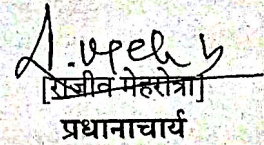 [राजीव मेहरोत्रा]
प्रधानाचार्य